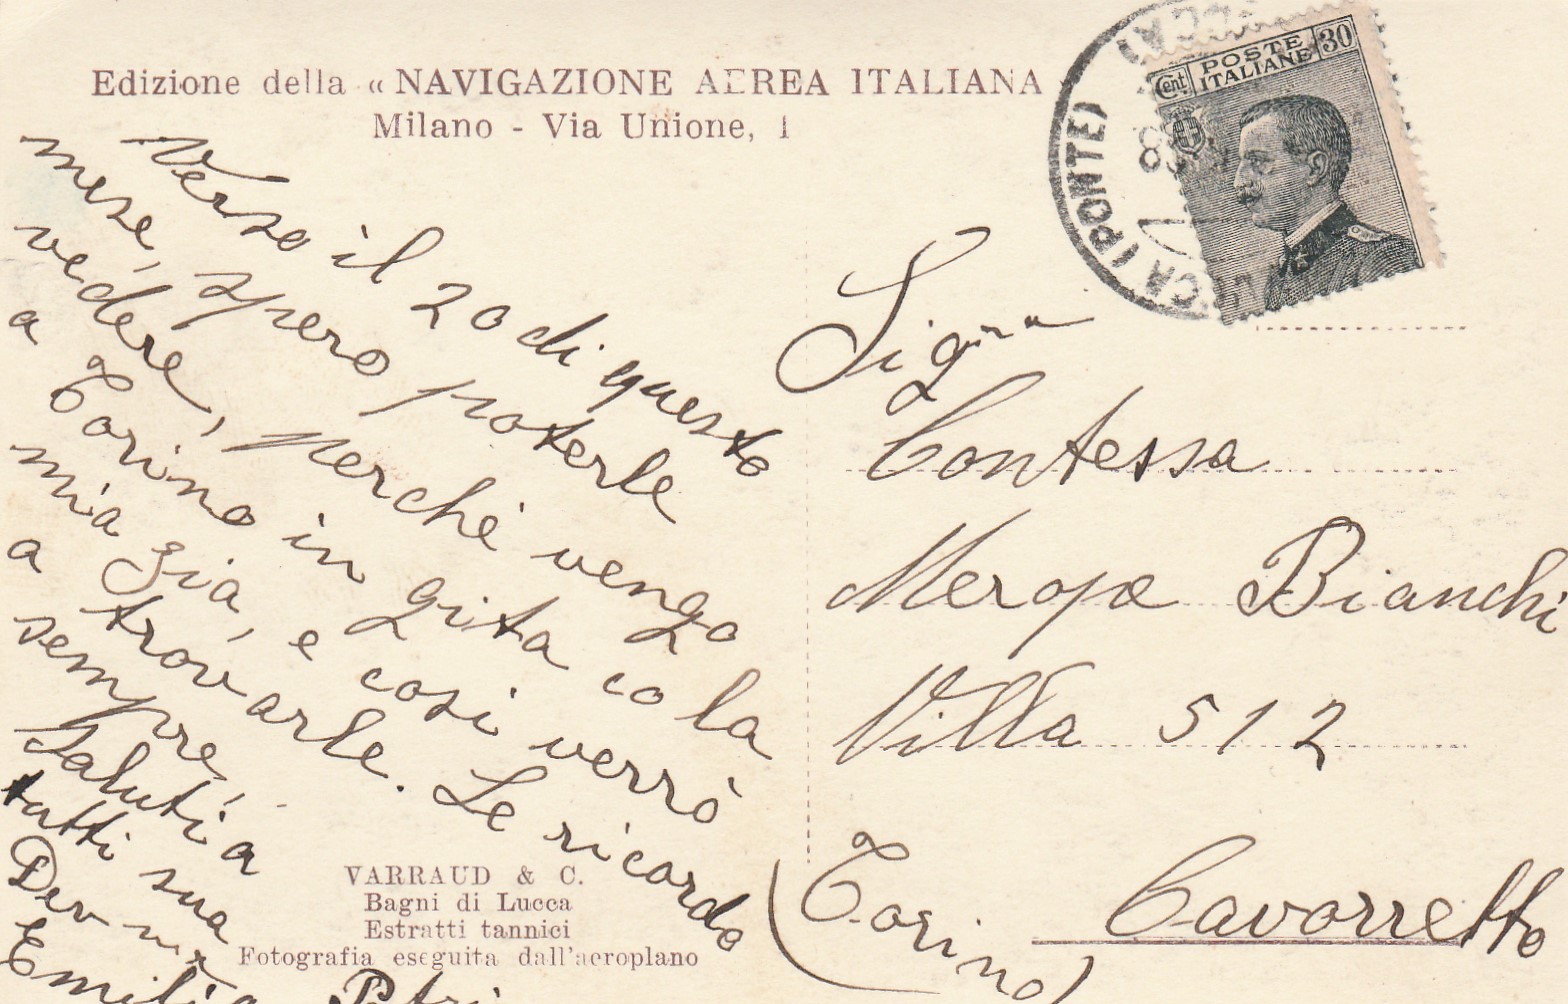 Edizione della « NAVIGAZIONE AEREA ITALIANA
Milano - Via Unione, 1
Cent POSTE ITALIANE 30
CCA (PONTE)
Verso il 20 di questo
mese, spero poterle
vedere, perchè vengo
a Torino in gita co la
mia zia, e cosi verrò
a trovarle. Le ricordo
sempre,
Saluti a
tutti sua
Dev ma
Emilia Petri
Sigra
Contessa
Merope Bianchi
Villa 512
Cavorretto
(Torino)
VARRAUD & C.
Bagni di Lucca
Estratti tannici
Fotografia eseguita dall'aeroplano